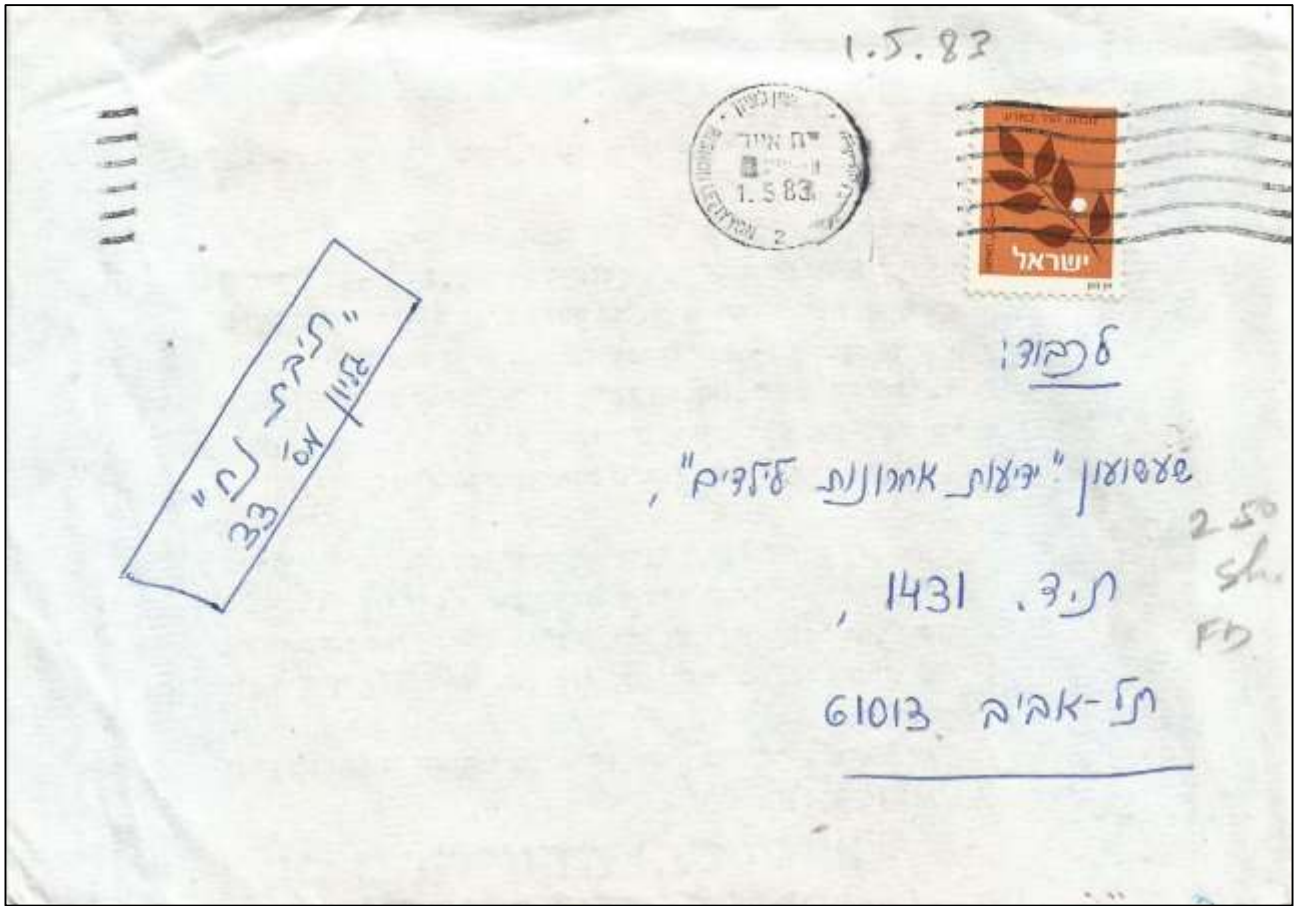 1.5.83
ראשון לציון
RISHON LEZIYYON
י"ח אייר
1.5 83
2
ישראל
לכבוד:
שעשועון "ידיעות אחרונות לילדים",
ת.ד. 1431,
תל-אביב 61013
"תיבת נח"
גליון מס'
33
2.50
Sh.
FD